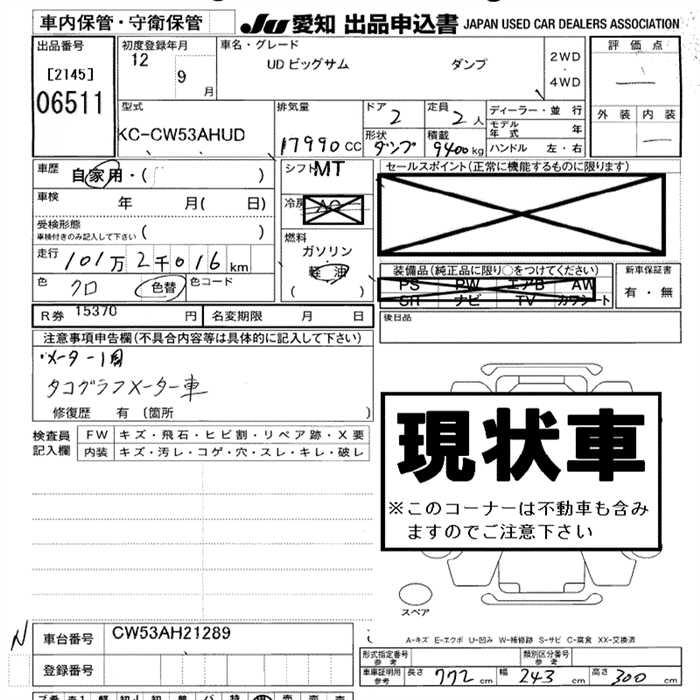 車内保管・守衛保管
JU 愛知 出品申込書 JAPAN USED CAR DEALERS ASSOCIATION
出品番号
[2145]
06511
初度登録年月
12 9月
車名・グレード
UDビッグサム ダンプ
2WD
・
4WD
評価点
外装 内装
型式
KC-CW53AHUD
排気量
17990 CC
ドア
2
定員
2人
形状
ダンプ
積載
9400kg
ディーラー・並行
モデル年式 年
ハンドル 左・右
車歴
自家用・( )
車検
年 月( 日)
受検形態
車検付きのみ記入して下さい ( )
走行
101万2千016km
色
クロ 色替
色コード
シフト MT
冷房 AC
燃料
ガソリン
軽油
( )
セールスポイント(正常に機能するものに限ります)
装備品(純正品に限り○をつけてください)
PS PW エアB AW
SR ナビ TV カワシート
新車保証書
有・無
R券 15370 円
名変期限 月 日
後日品
注意事項申告欄(不具合内容等は具体的に記入して下さい)
メーター1回
タコグラフメーター車
修復歴 有 (箇所 )
検査員記入欄
FW キズ・飛石・ヒビ割・リペア跡・X要
内装 キズ・汚レ・コゲ・穴・スレ・キレ・破レ
現状車
※このコーナーは不動車も含み
ますのでご注意下さい
スペア
A-キズ E-エクボ U-凹み W-補修跡 S-サビ C-腐食 XX-交換済
N
車台番号
CW53AH21289
登録番号
型式指定番号
参考
類別区分番号
参考
車庫証明用
参考
長さ 772 cm 幅 243 cm 高さ 300 cm